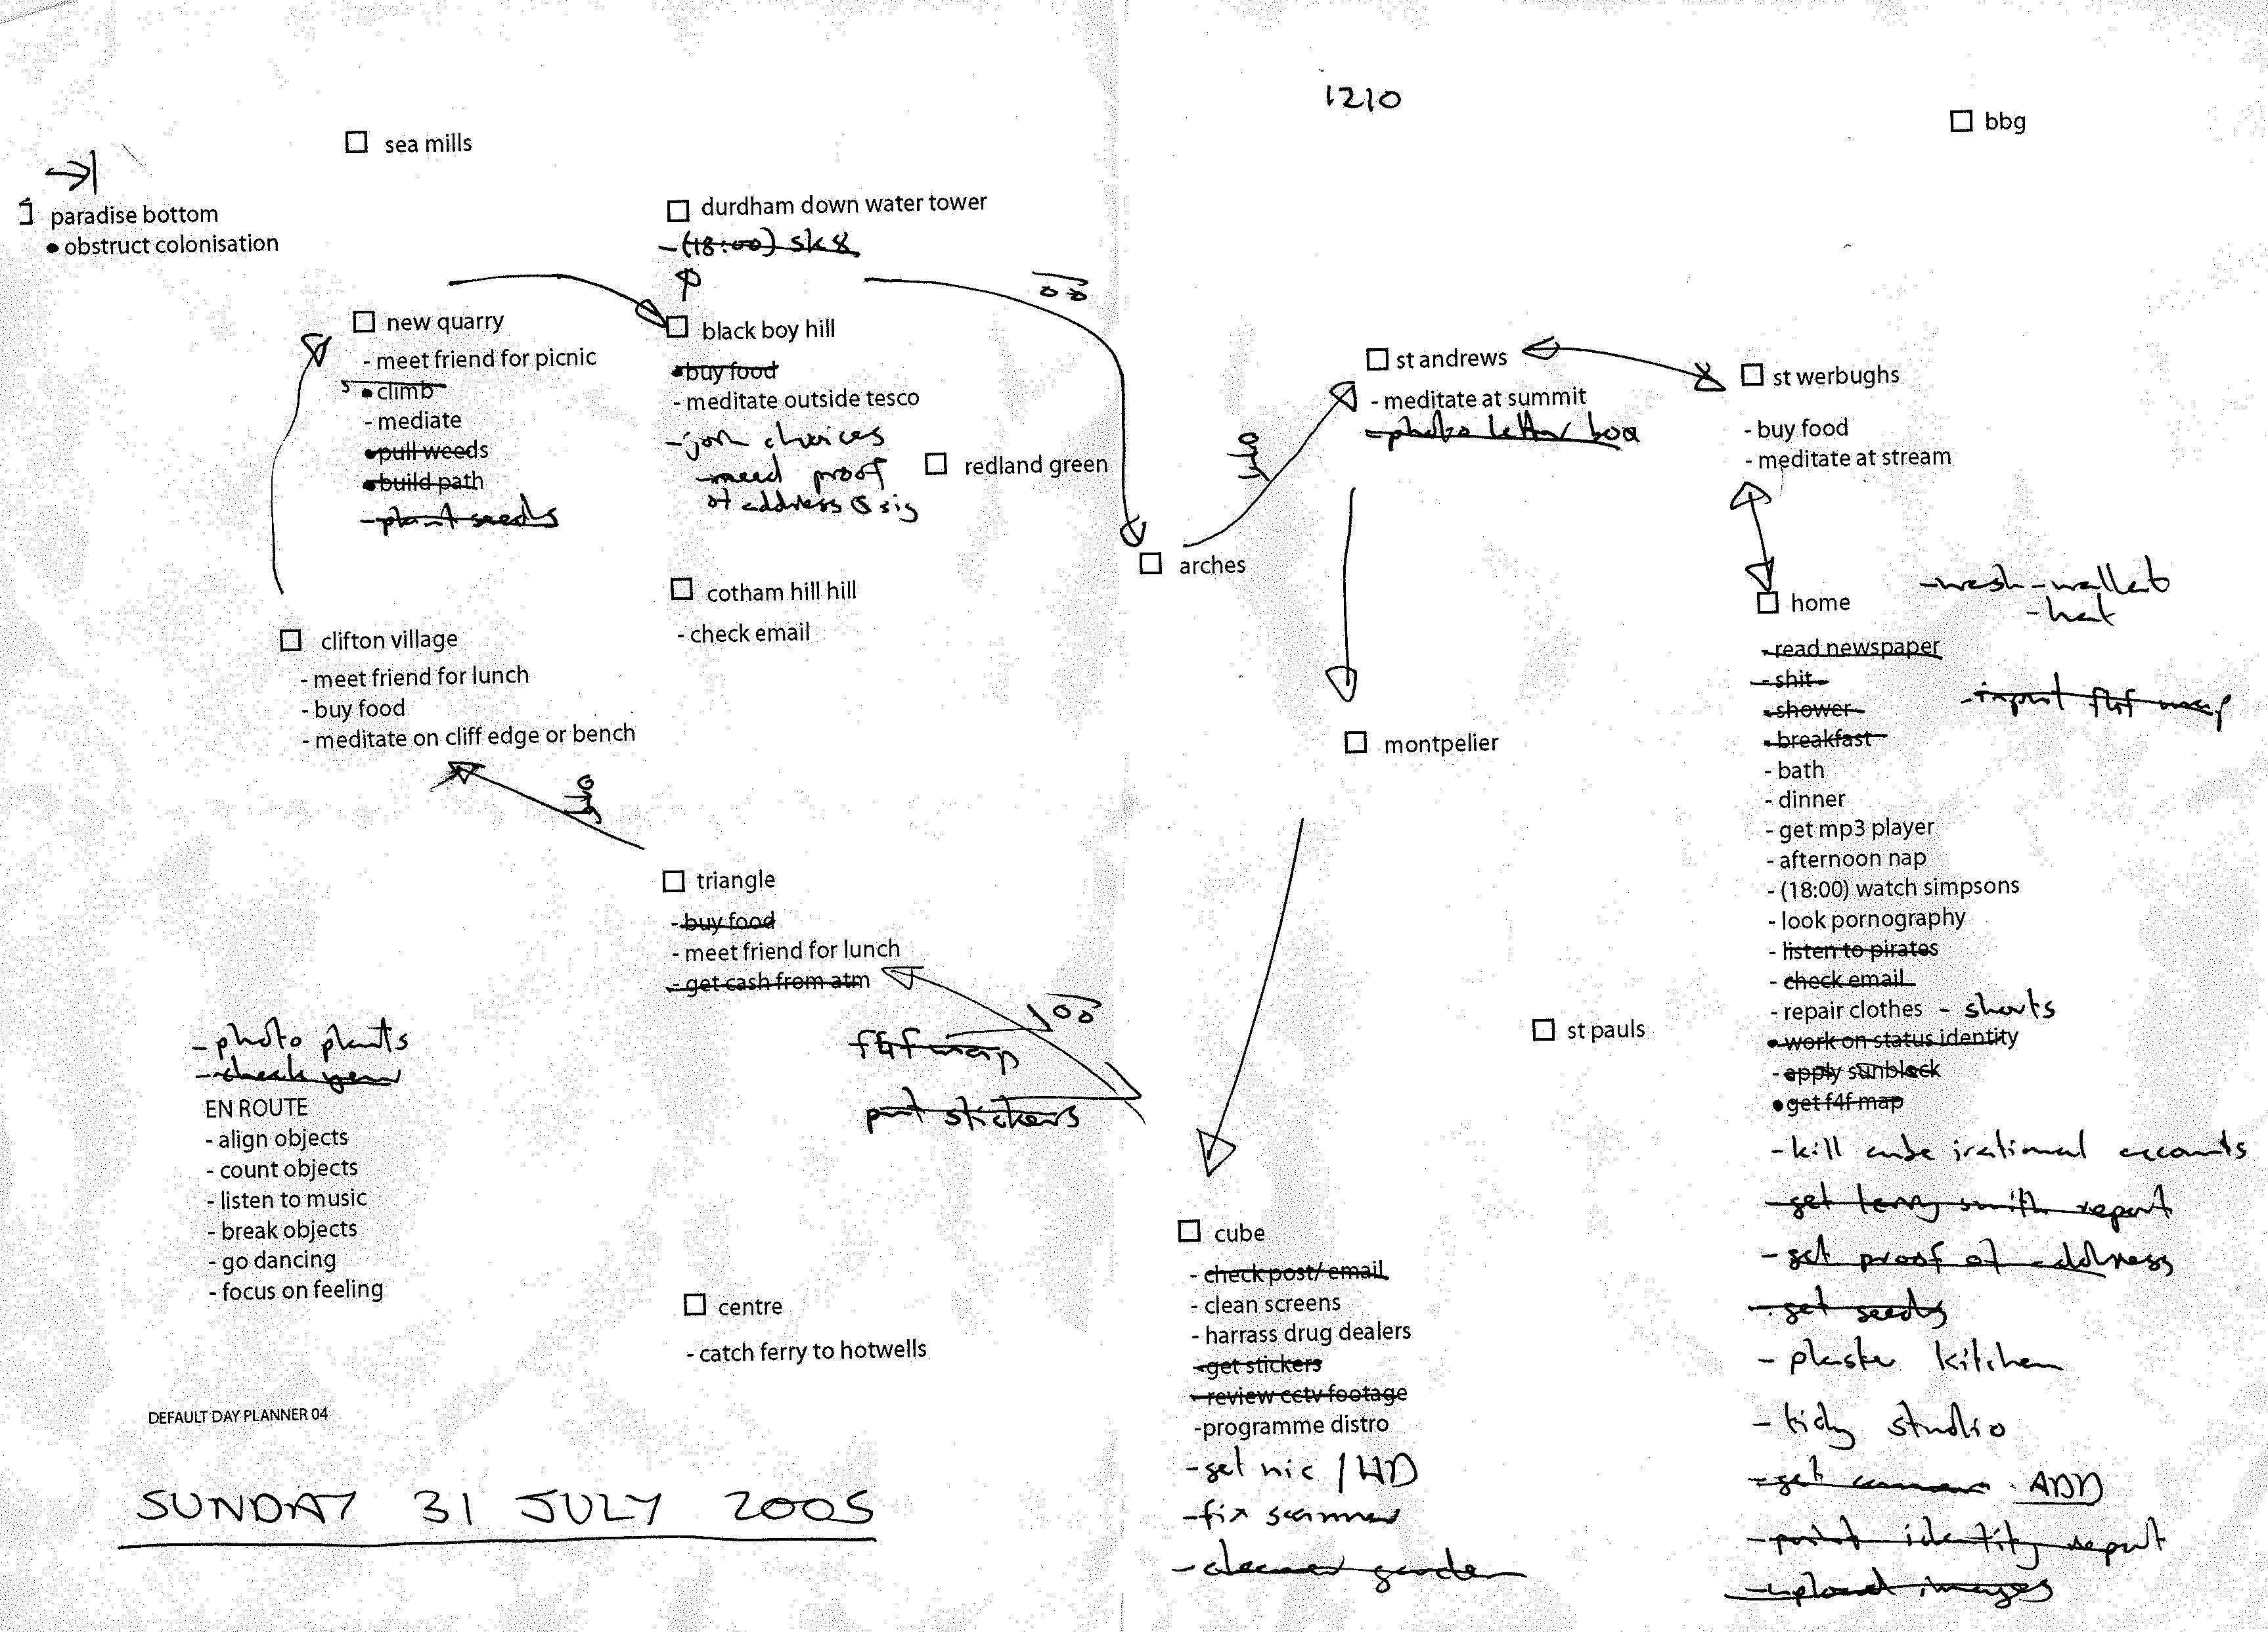 1210
bbg
sea mills
paradise bottom
• obstruct colonisation
durdham down water tower
- (18:00) sk8
new quarry
- meet friend for picnic
• climb
- mediate
• pull weeds
• build path
- plant seeds
black boy hill
• buy food
- meditate outside tesco
- join choices
- need proof
of address & sig
redland green
arches
st andrews
- meditate at summit
- photo letter box
st werbughs
- buy food
- meditate at stream
cotham hill hill
- check email
clifton village
- meet friend for lunch
- buy food
- meditate on cliff edge or bench
montpelier
home
- wash - wallet
- hat
- read newspaper
- shit
- shower
- breakfast
- input f4f map
- bath
- dinner
- get mp3 player
- afternoon nap
- (18:00) watch simpsons
- look pornography
- listen to pirates
- check email
- repair clothes - shorts
• work on status identity
- apply sunblock
• get f4f map
- kill cube irational accounts
- get terry smith report
- get proof of address
- get seeds
- plaster kitchen
- tidy studio
- get camera. ADD
- print identity report
- upload images
triangle
- buy food
- meet friend for lunch
- get cash from atm
f4f map
put stickers
st pauls
- photo plants
- check
EN ROUTE
- align objects
- count objects
- listen to music
- break objects
- go dancing
- focus on feeling
centre
- catch ferry to hotwells
cube
- check post/ email
- clean screens
- harrass drug dealers
- get stickers
- review cctv footage
-programme distro
- get nic / HD
- fix scanner
- garden
DEFAULT DAY PLANNER 04
SUNDAY 31 JULY 2005